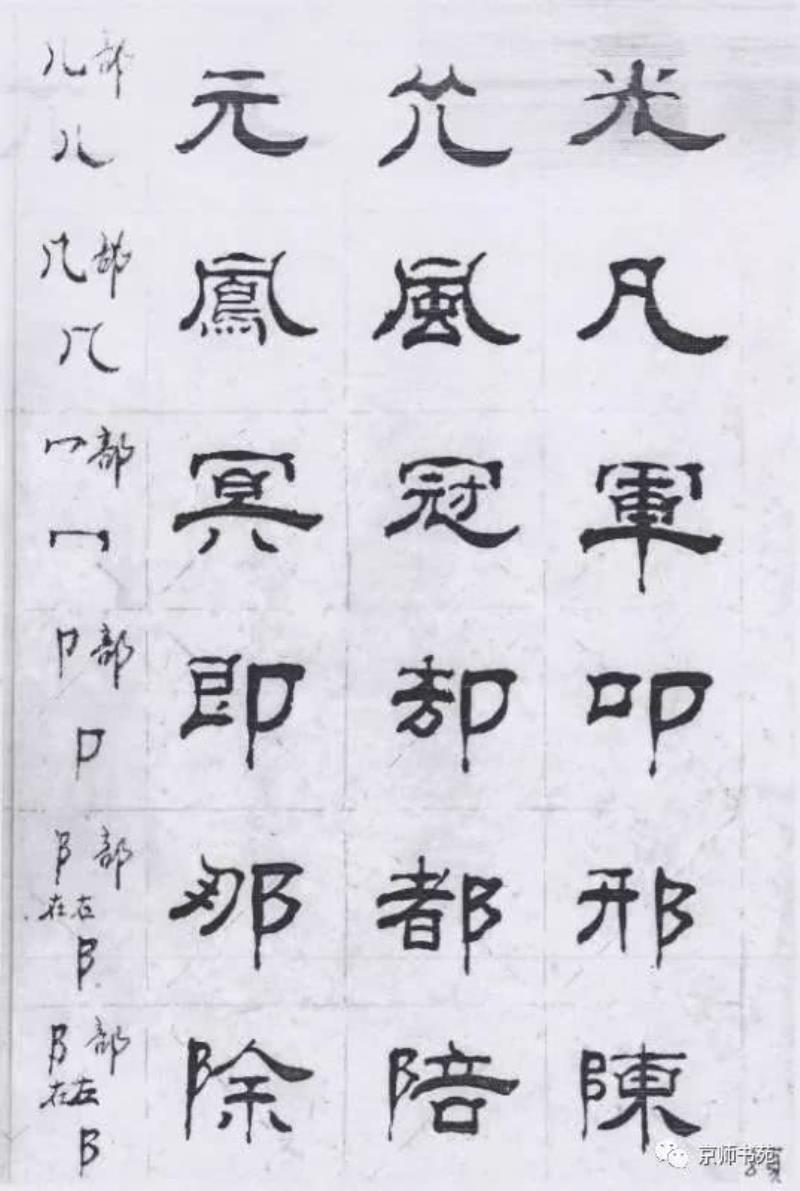 儿部 元 光
儿
几部 鳳 風 凡
几
冖部 冥 冠 軍
冖
卩部 即 却 叩
卩
阝部 那 都 邢
在右
阝
阝部 除 陪 陳
在左
阝
京师书苑